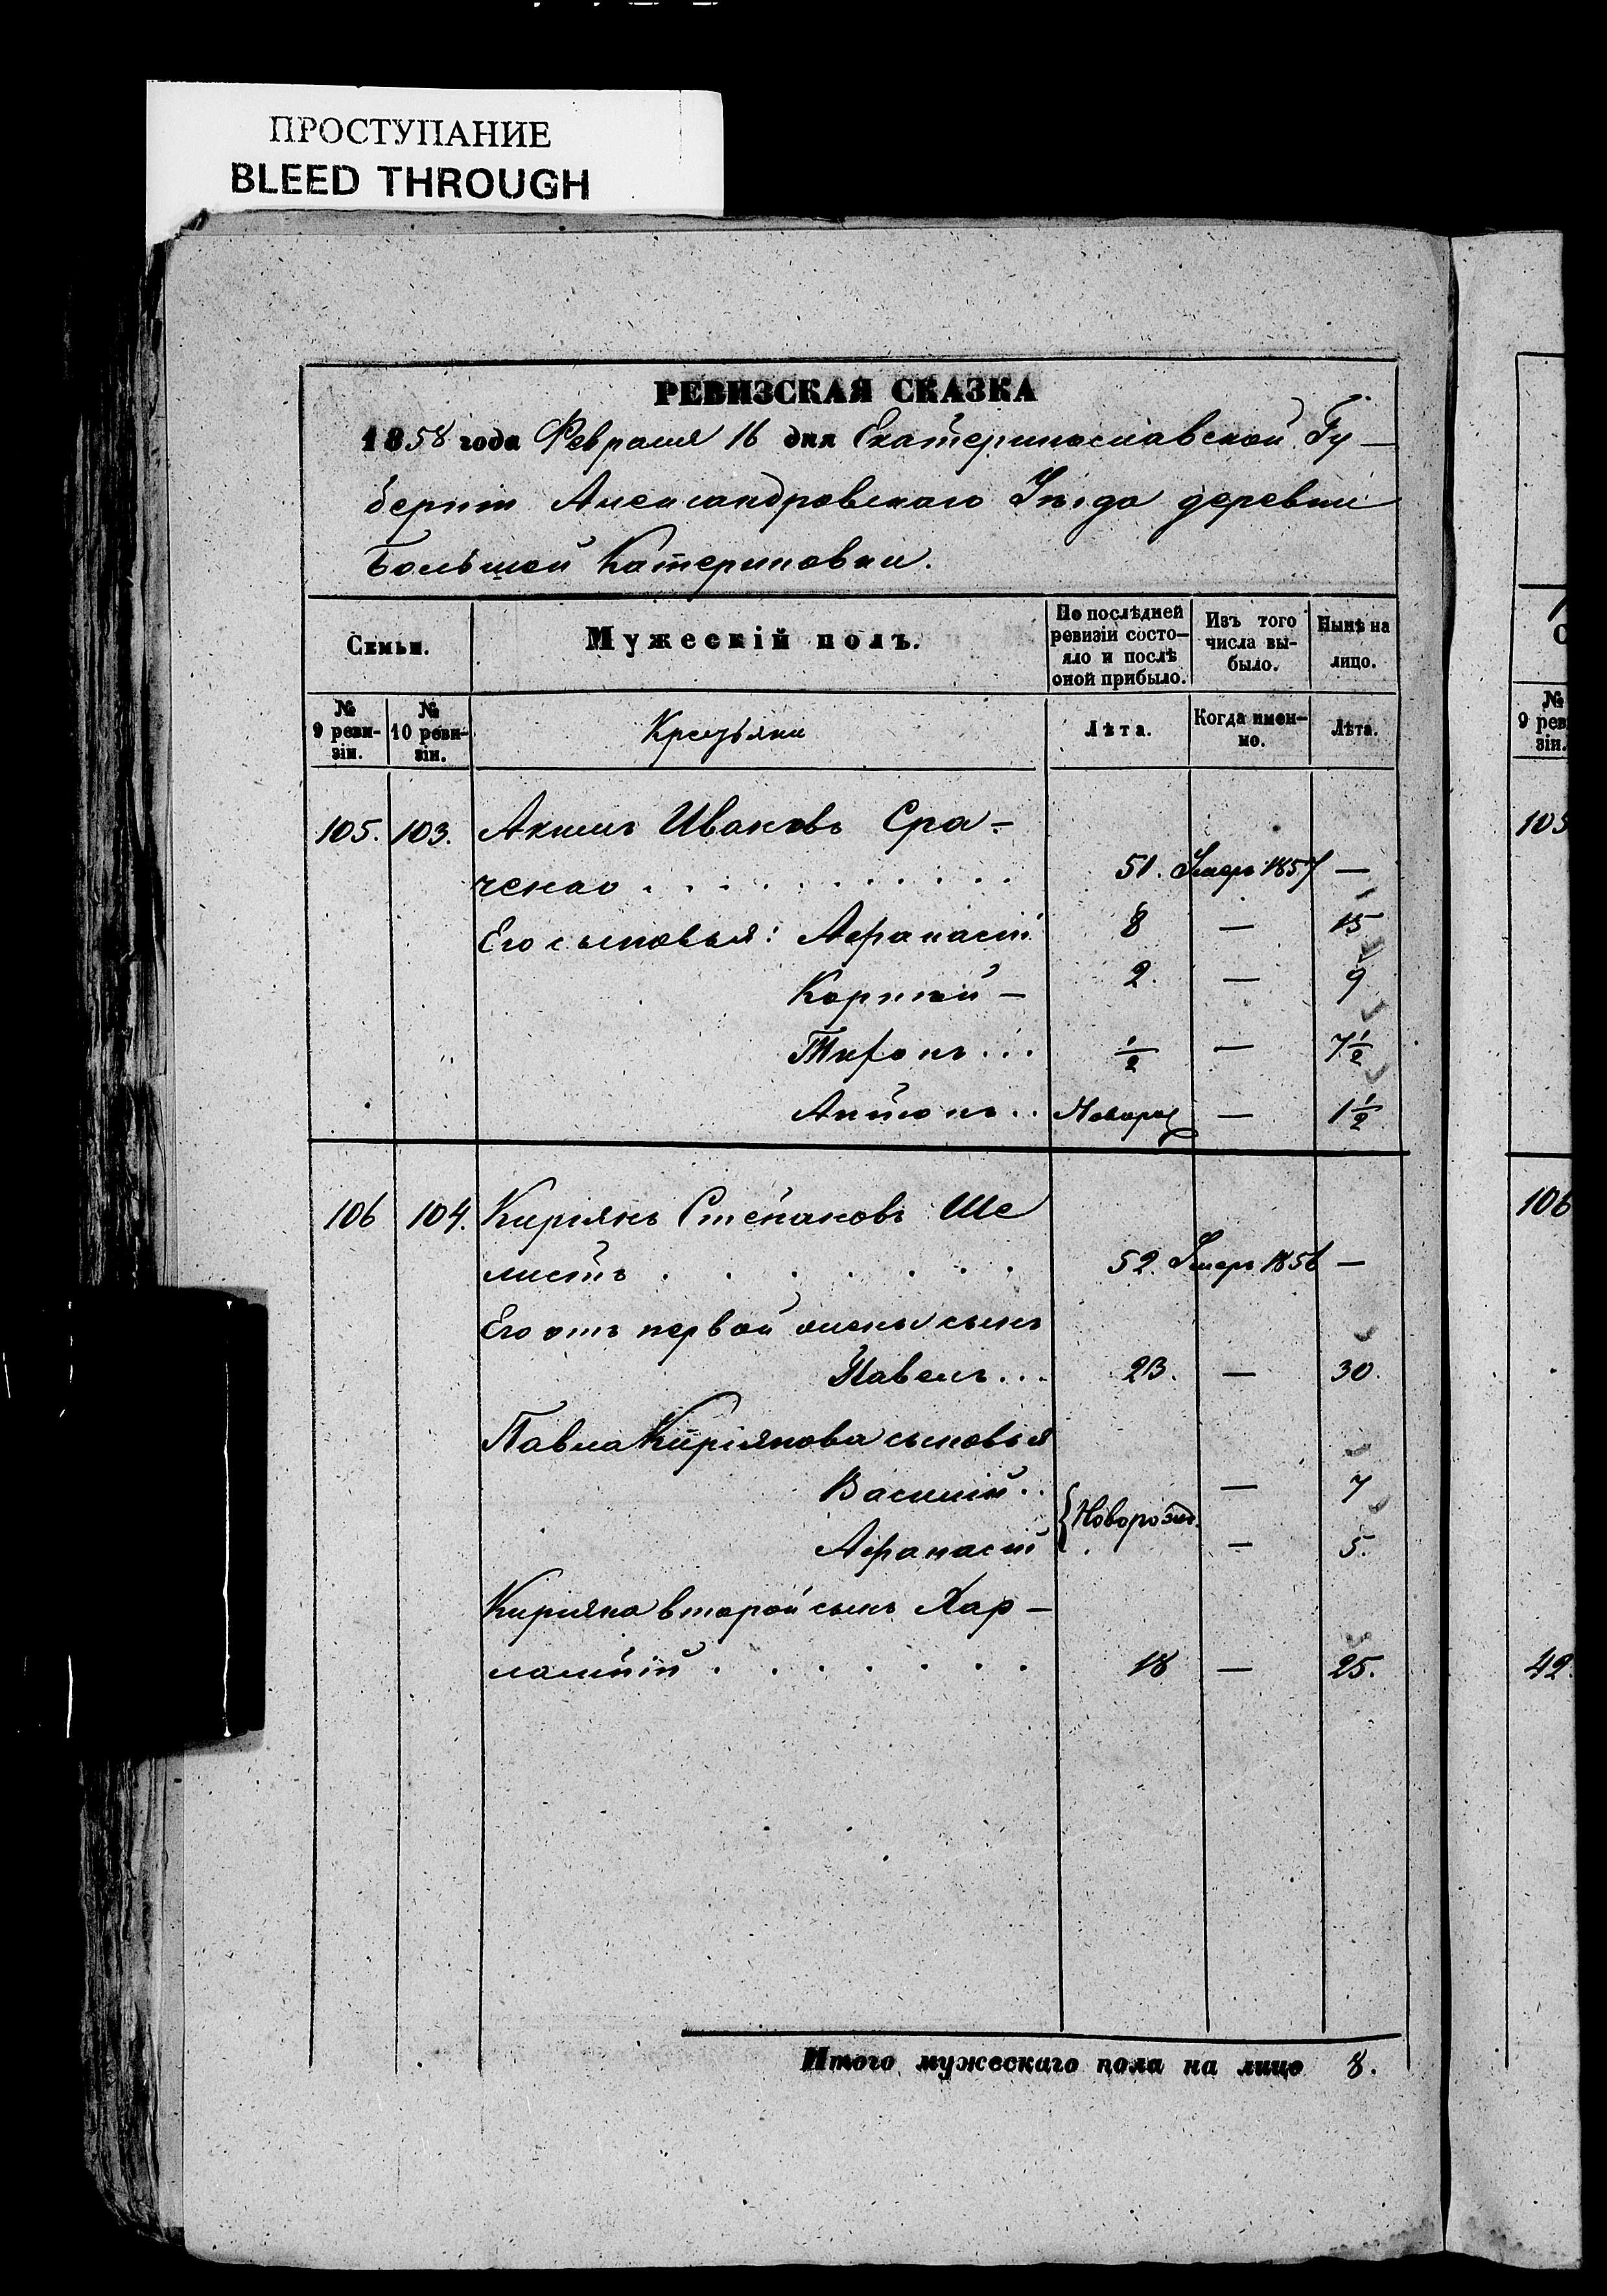 ПРОСТУПАНИЕ
BLEED THROUGH
РЕВИЗСКАЯ СКАЗКА
1858 года Февраля 16 дня Екатеринославской Гу-
берніи Александровскаго Уѣзда деревни
Большой Катериновки.
Семьи.
Мужескій полъ.
По послѣдней ревизіи состо-яло и послѣ оной прибыло.
Изъ того числа вы-было.
Нынѣ на лицо.
№ 9 реви-зіи.
№ 10 реви-зіи.
Крестьяни
Лѣта.
Когда имен-но.
Лѣта.
№ 9 рев зіи.
105. 103. Акимъ Ивановъ Сра-
ченко 51. Умеръ 1857 —
Его сыновья: Афанасій 8 — 15
Корній — 2. — 9
Тифонъ... ½ — 7½
Антонъ.. Новорож — 1½
106 104. Киріякъ Степановъ Ше
листъ 52. Умеръ 1856 —
Его отъ первой жены сынъ
Павелъ... 23. — 30.
Павла Киріякова сыновья
Василій.. — 7
{Новорожд.
Афанасій — 5.
Киріяка второй сынъ Хар-
лампій 18 — 25.
Итого мужескаго пола на лицо 8.
105
106
42.